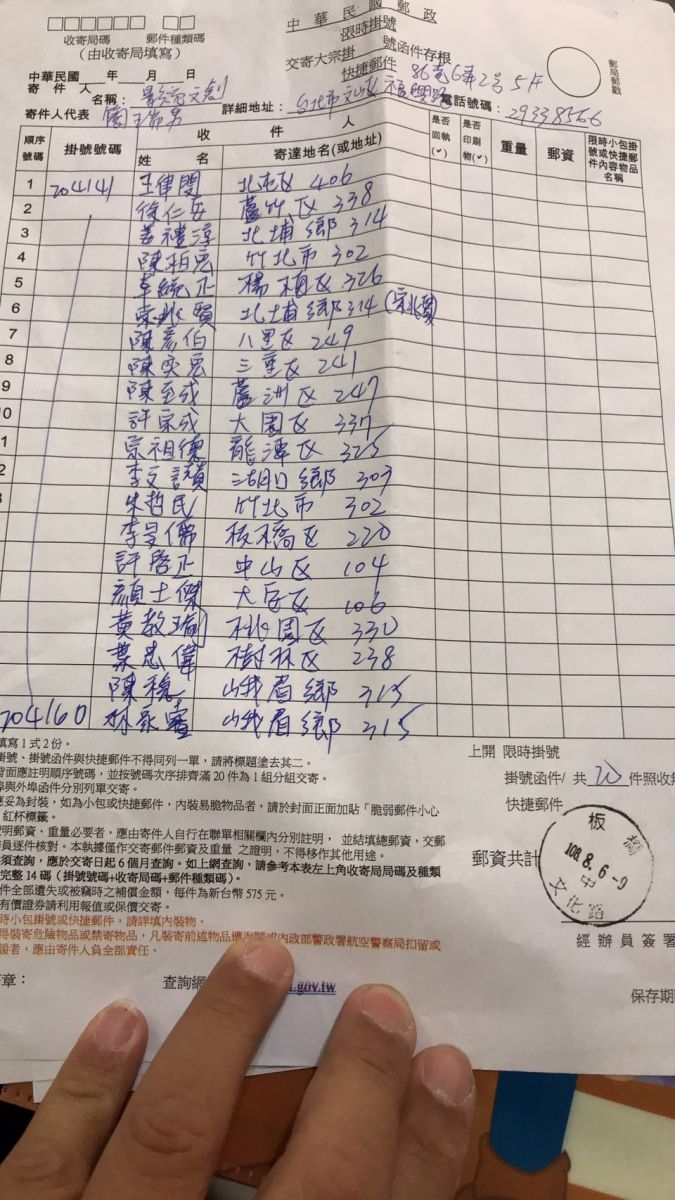 中華民國郵政
限時掛號
交寄大宗掛 號函件存根
快捷郵件
收寄局碼 郵件種類碼
(由收寄局填寫)
郵局郵戳
中華民國 年 月 日
寄件人 名稱: 文創 詳細地址: 台北市文山區 86巷6弄2號5F
寄件人代表 電話號碼: 29338566
順序號碼 掛號號碼 收件人 是否回執(✓) 是否印刷物(✓) 重量 郵資 限時小包掛號或快捷郵件內容物品名稱
姓名 寄達地名(或地址)
1 204141 王律閔 北屯區 406
2 徐仁 蘆竹區 338
3 姜禮淳 北埔鄉 314
4 陳柏宏 竹北市 302
5 正 楊梅區 326
6 賢 北埔鄉 314
7 陳彥伯 八里區 249
8 陳奕宏 三重區 241
9 陳至成 蘆洲區 247
0 許宗成 大園區 337
1 宗祖德 龍潭區 325
2 李文讚 湖口鄉 303
朱哲民 竹北市 302
李 儒 板橋區 220
許啓正 中山區 104
顏士傑 大安區 106
黃教瑜 桃園區 330
葉忠偉 樹林區 238
陳穩 峨眉鄉 315
204160 林家 峨眉鄉 315
填寫1式2份。
掛號、掛號函件與快捷郵件不得同列一單,請將標題塗去其二。
背面應註明順序號碼,並按號碼次序排齊滿20件為1組分組交寄。
埠與外埠函件分別列單交寄。
應妥為封裝,如為小包或快捷郵件,內裝易脆物品者,請於封面正面加貼「脆弱郵件小心
紅杯標籤。
證明郵資、重量必要者,應由寄件人自行在聯單相關欄內分別註明, 並結填總郵資,交郵
員逐件核對。本執據僅作交寄郵件郵資及重量 之證明,不得移作其他用途。
須查詢,應於交寄日起6個月查詢。如上網查詢,請參考本表左上角收寄局局碼及種類
完整14碼(掛號號碼+收寄局碼+郵件種類碼)。
件全部遺失或被竊時之補償金額,每件為新台幣575元。
有價證券請利用報值或保價交寄。
時小包掛號或快捷郵件,請詳填內裝物。
得裝寄危險物品或禁寄物品,凡裝寄前述物品 內政部警政署航空警察局扣留或
毀者,應由寄件人負全部責任。
上開 限時掛號
掛號函件/ 共 20 件照收
快捷郵件
郵資共計
板橋
108.8.6-9
中
文化路
經辦員簽署
章: 查詢網 .gov.tw
保存期